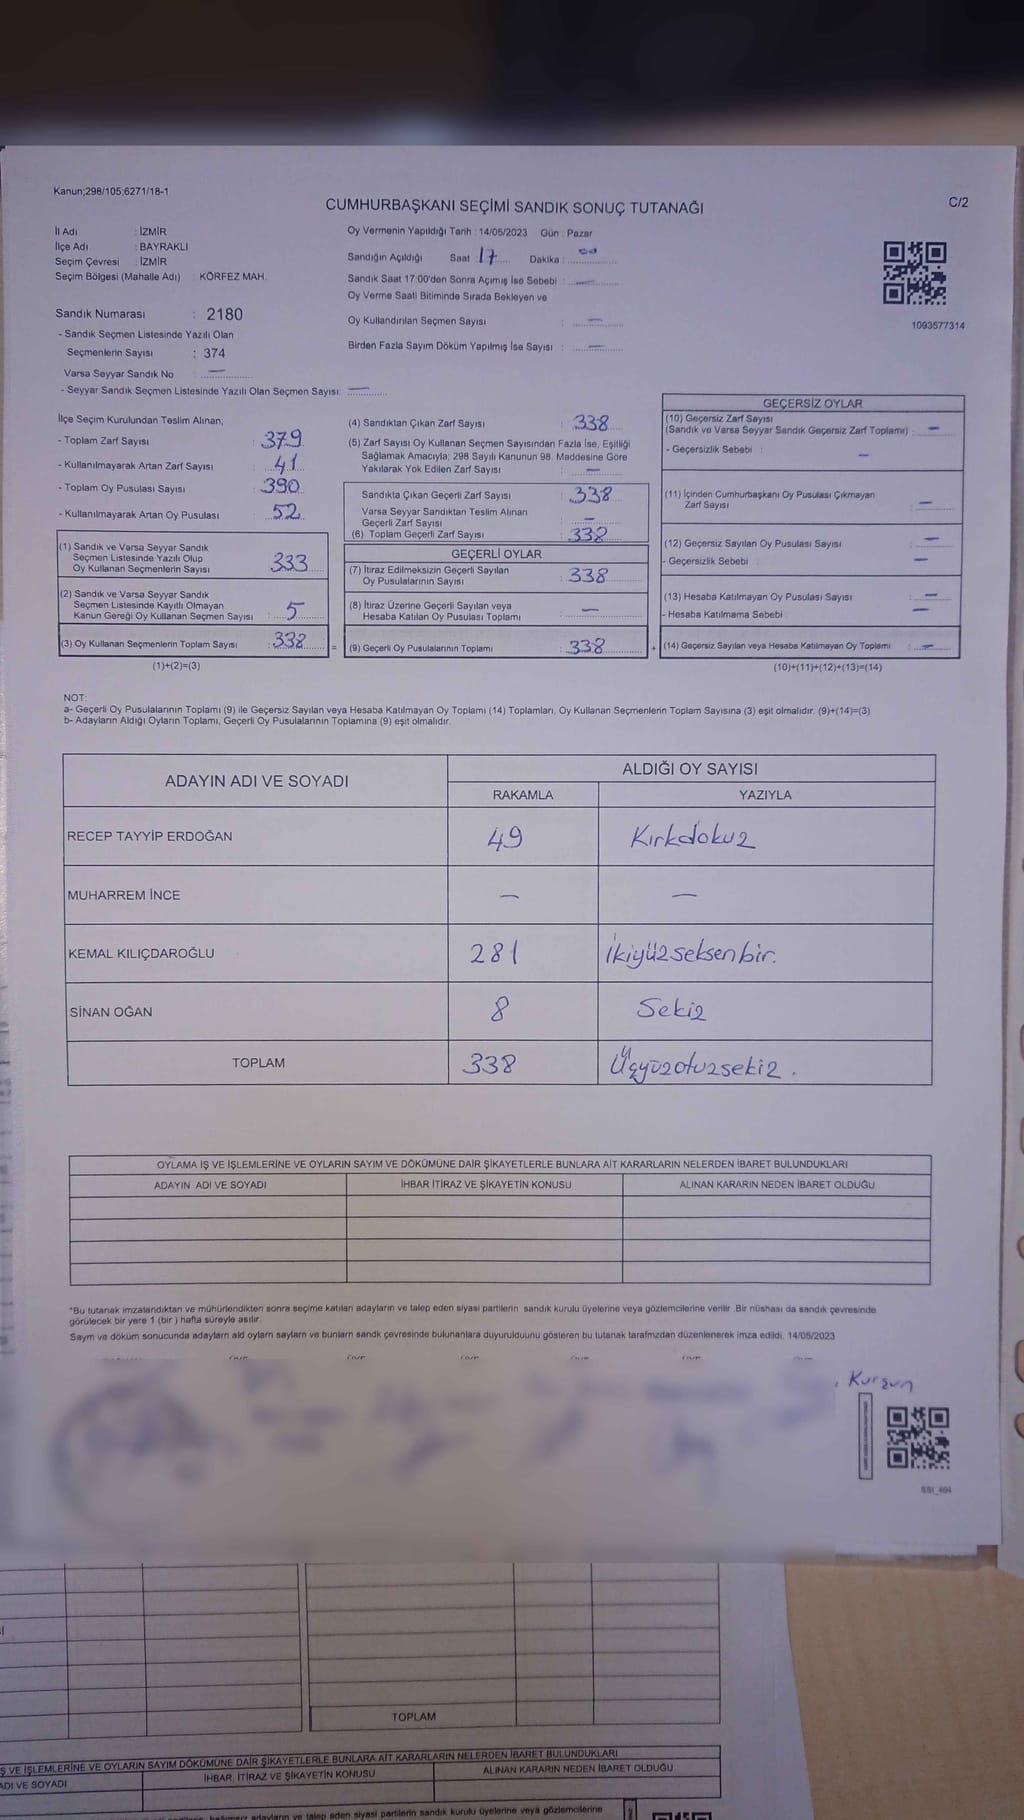 Kanun;298/105;6271/18-1
C/2
CUMHURBAŞKANI SEÇİMİ SANDIK SONUÇ TUTANAĞI
İl Adı : İZMİR
İlçe Adı : BAYRAKLI
Seçim Çevresi : İZMİR
Seçim Bölgesi (Mahalle Adı) : KÖRFEZ MAH.
Sandık Numarası : 2180
- Sandık Seçmen Listesinde Yazılı Olan
Seçmenlerin Sayısı : 374
Varsa Seyyar Sandık No —
- Seyyar Sandık Seçmen Listesinde Yazılı Olan Seçmen Sayısı: —
Oy Vermenin Yapıldığı Tarih : 14/05/2023 Gün : Pazar
Sandığın Açıldığı Saat : 17 Dakika : 00
Sandık Saat 17:00'den Sonra Açımış İse Sebebi : —
Oy Verme Saati Bitiminde Sırada Bekleyen ve
Oy Kullandırılan Seçmen Sayısı : —
Birden Fazla Sayım Döküm Yapılmış İse Sayısı : —
1093577314
İlçe Seçim Kurulundan Teslim Alınan;
- Toplam Zarf Sayısı : 379
- Kullanılmayarak Artan Zarf Sayısı : 41
- Toplam Oy Pusulası Sayısı : 390
- Kullanılmayarak Artan Oy Pusulası : 52
(1) Sandık ve Varsa Seyyar Sandık
Seçmen Listesinde Yazılı Olup
Oy Kullanan Seçmenlerin Sayısı : 333
(2) Sandık ve Varsa Seyyar Sandık
Seçmen Listesinde Kayıtlı Olmayan
Kanun Gereği Oy Kullanan Seçmen Sayısı : 5
(3) Oy Kullanan Seçmenlerin Toplam Sayısı : 338
(1)+(2)=(3)
(4) Sandıktan Çıkan Zarf Sayısı : 338
(5) Zarf Sayısı Oy Kullanan Seçmen Sayısından Fazla İse, Eşitliği
Sağlamak Amacıyla; 298 Sayılı Kanunun 98. Maddesine Göre
Yakılarak Yok Edilen Zarf Sayısı : —
Sandıkta Çıkan Geçerli Zarf Sayısı : 338
Varsa Seyyar Sandıktan Teslim Alınan
Geçerli Zarf Sayısı : —
(6) Toplam Geçerli Zarf Sayısı : 338
GEÇERLİ OYLAR
(7) İtiraz Edilmeksizin Geçerli Sayılan
Oy Pusulalarının Sayısı : 338
(8) İtiraz Üzerine Geçerli Sayılan veya
Hesaba Katılan Oy Pusulası Toplamı : —
= (9) Geçerli Oy Pusulalarının Toplamı : 338
GEÇERSİZ OYLAR
(10) Geçersiz Zarf Sayısı
(Sandık ve Varsa Seyyar Sandık Geçersiz Zarf Toplamı) : —
- Geçersizlik Sebebi : —
(11) İçinden Cumhurbaşkanı Oy Pusulası Çıkmayan
Zarf Sayısı : —
(12) Geçersiz Sayılan Oy Pusulası Sayısı : —
- Geçersizlik Sebebi : —
(13) Hesaba Katılmayan Oy Pusulası Sayısı : —
- Hesaba Katılmama Sebebi : —
+ (14) Geçersiz Sayılan veya Hesaba Katılmayan Oy Toplamı : —
(10)+(11)+(12)+(13)=(14)
NOT:
a- Geçerli Oy Pusulalarının Toplamı (9) ile Geçersiz Sayılan veya Hesaba Katılmayan Oy Toplamı (14) Toplamları, Oy Kullanan Seçmenlerin Toplam Sayısına (3) eşit olmalıdır. (9)+(14)=(3)
b- Adayların Aldığı Oyların Toplamı, Geçerli Oy Pusulalarının Toplamına (9) eşit olmalıdır.
ADAYIN ADI VE SOYADI ALDIĞI OY SAYISI
RAKAMLA YAZIYLA
RECEP TAYYİP ERDOĞAN 49 Kırkdokuz
MUHARREM İNCE — —
KEMAL KILIÇDAROĞLU 281 İkiyüzseksenbir.
SİNAN OĞAN 8 Sekiz
TOPLAM 338 Üçyüzotuzsekiz.
OYLAMA İŞ VE İŞLEMLERİNE VE OYLARIN SAYIM VE DÖKÜMÜNE DAİR ŞİKAYETLERLE BUNLARA AİT KARARLARIN NELERDEN İBARET BULUNDUKLARI
ADAYIN ADI VE SOYADI İHBAR İTİRAZ VE ŞİKAYETİN KONUSU ALINAN KARARIN NEDEN İBARET OLDUĞU
"Bu tutanak imzalandıktan ve mühürlendikten sonra seçime katılan adayların ve talep eden siyasi partilerin sandık kurulu üyelerine veya gözlemcilerine verilir. Bir nüshası da sandık çevresinde
görülecek bir yere 1 (bir ) hafta süreyle asılır.
Sayım ve döküm sonucunda adayların ald oyların sayların ve bunların sandk çevresinde bulunanlara duyurulduunu gösteren bu tutanak tarafmzdan düzenlenerek imza edildi. 14/05/2023
Kurşun
TOPLAM
Ş VE İŞLEMLERİNE VE OYLARIN SAYIM DÖKÜMÜNE DAİR ŞİKAYETLERLE BUNLARA AİT KARARLARIN NELERDEN İBARET BULUNDUKLARI
ADI VE SOYADI İHBAR, İTİRAZ VE ŞİKAYETİN KONUSU ALINAN KARARIN NEDEN İBARET OLDUĞU
talep eden siyasi partilerin sandık kurulu üyelerine veya gözlemcilerine